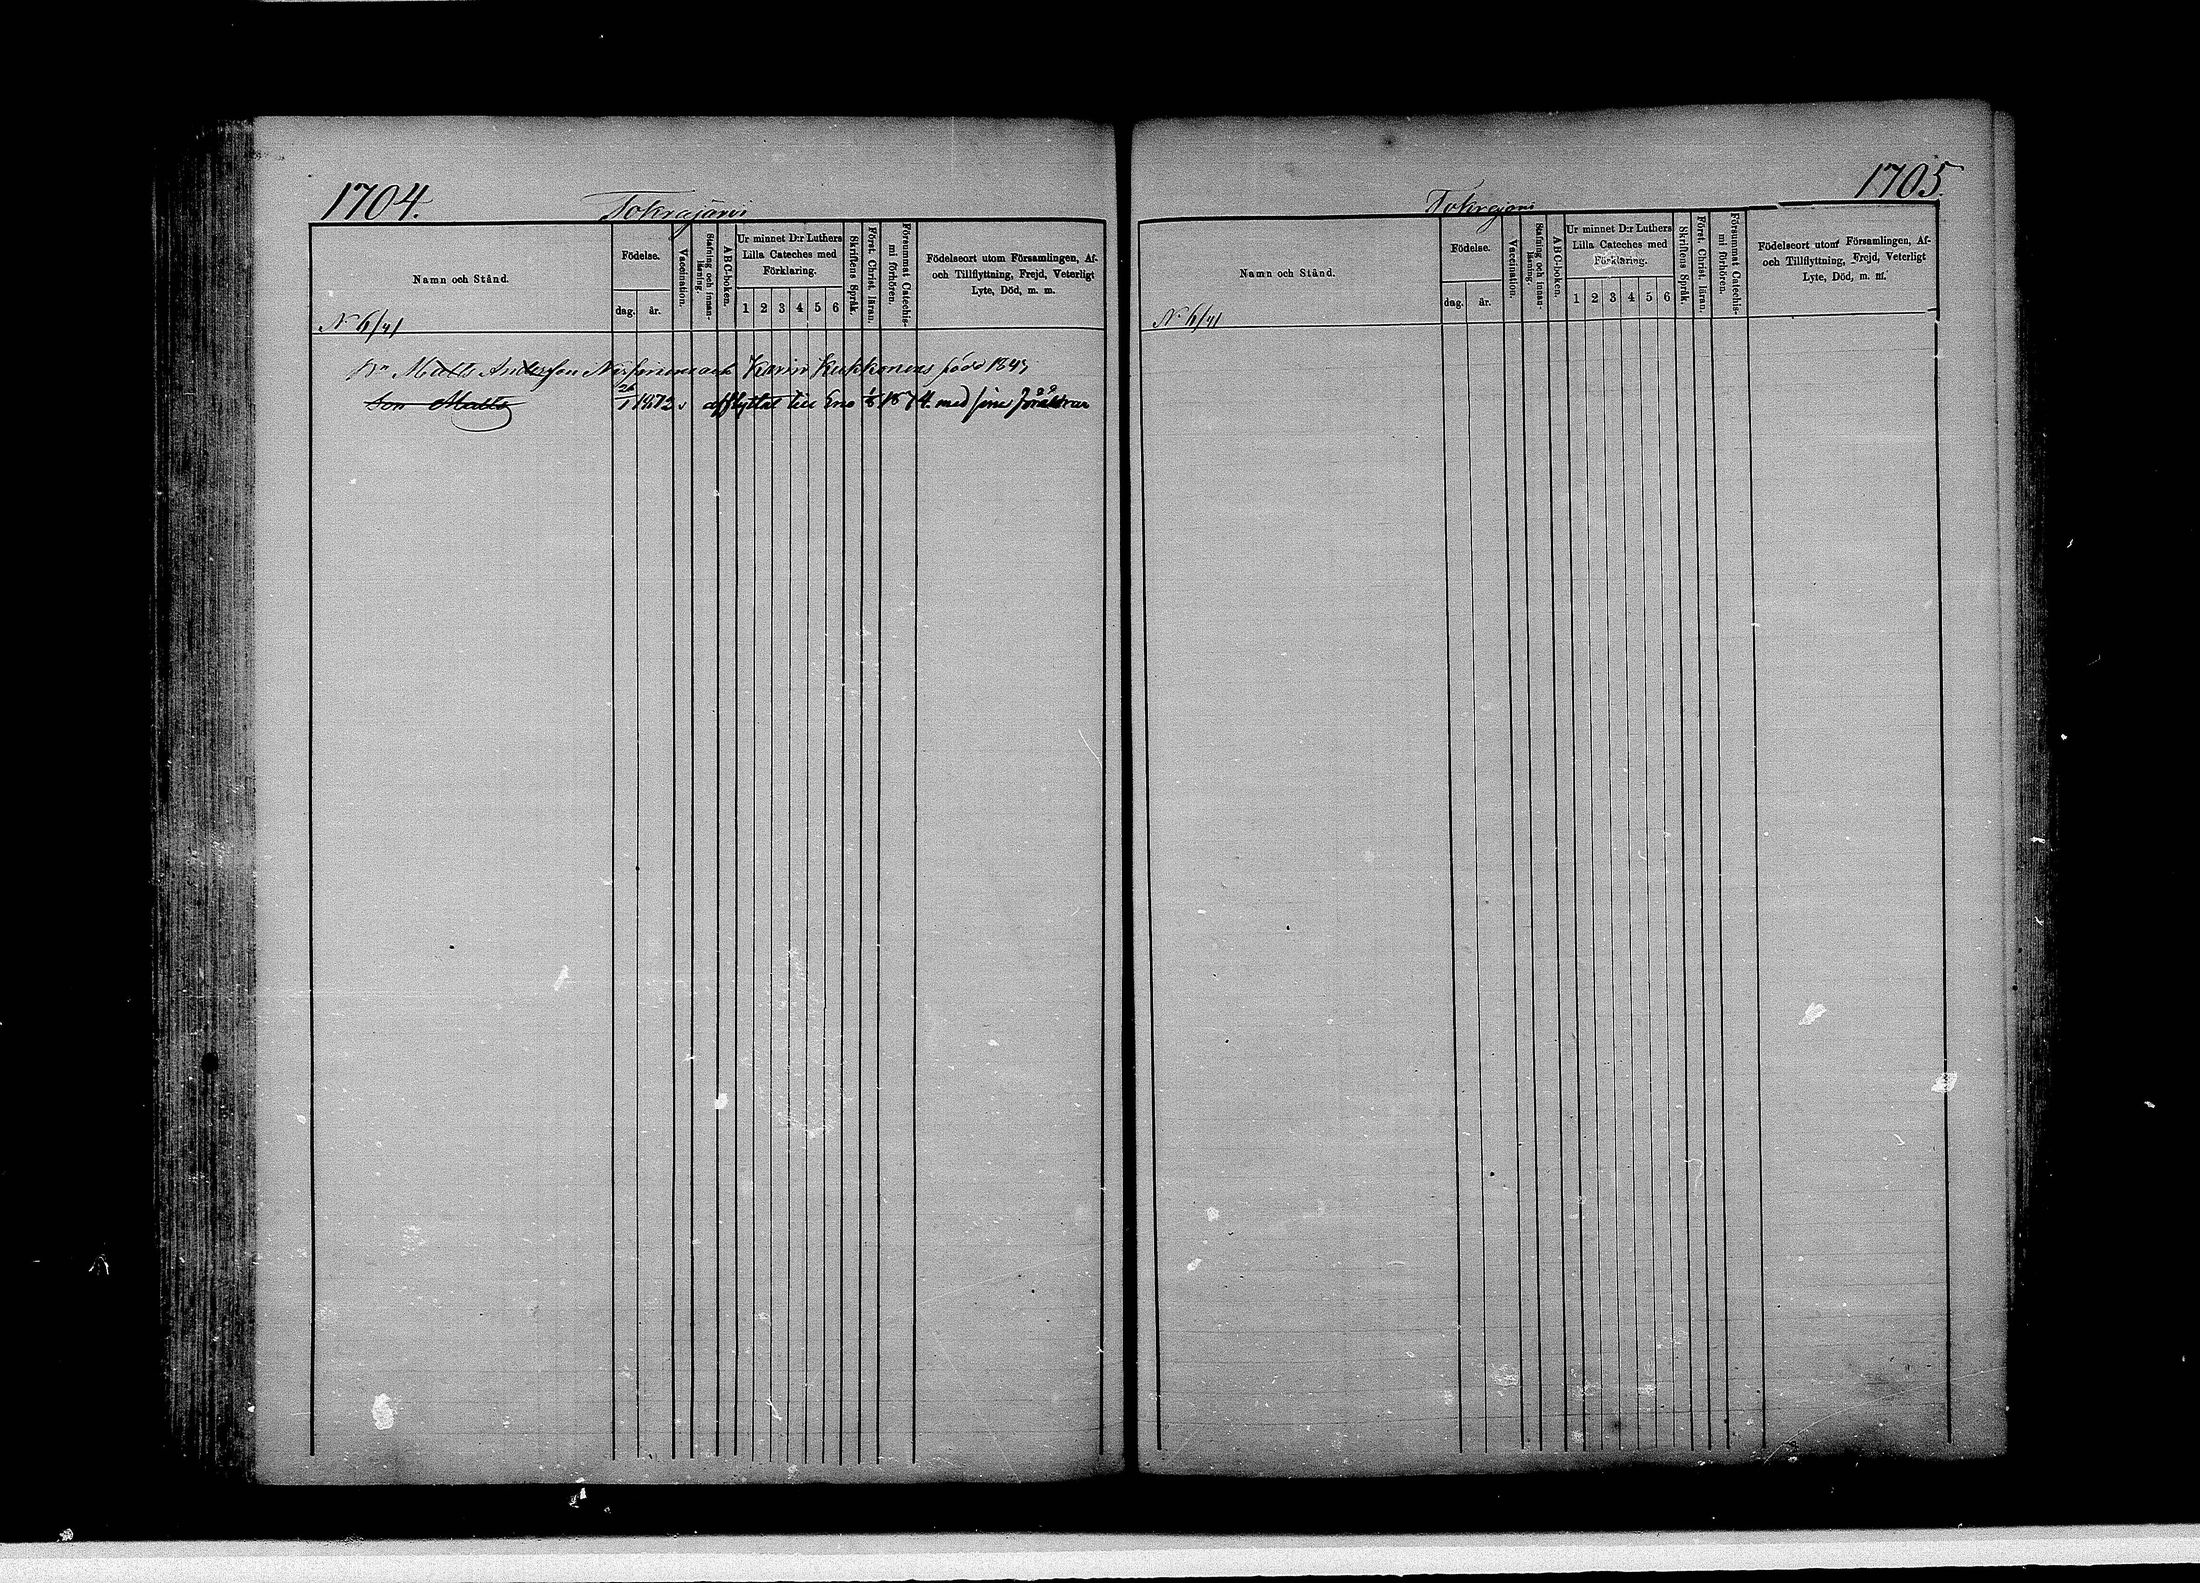 1704.
Tokrajärvi
Namn och Stånd.
Födelse.
dag.
år.
Vaccination.
Stafning och innan-
läsning.
ABC-boken.
Ur minnet D:r Luthers
Lilla Cateches med
Förklaring.
1 2 3 4 5 6
Skriftens Språk.
Föret. Christ. läran.
Försummat Catechis-
mi förhören.
Födelseort utom Församlingen, Af-
och Tillflyttning, Frejd, Veterligt
Lyte, Död, m. m.
Matts Andersson och Karin Kukkonens född
Son Matts 26/1 1872 afflyttat till Eno 1874 med sine föräldrar
1705.
Tokrajärvi
Namn och Stånd.
Födelse.
dag.
år.
Vaccination.
Stafning och innan-
läsning.
ABC-boken.
Ur minnet D:r Luthers
Lilla Cateches med
Förklaring.
1 2 3 4 5 6
Skriftens Språk.
Föret. Christ. läran.
Försummat Catechis-
mi förhören.
Födelseort utom Församlingen, Af-
och Tillflyttning, Frejd, Veterligt
Lyte, Död, m. m.